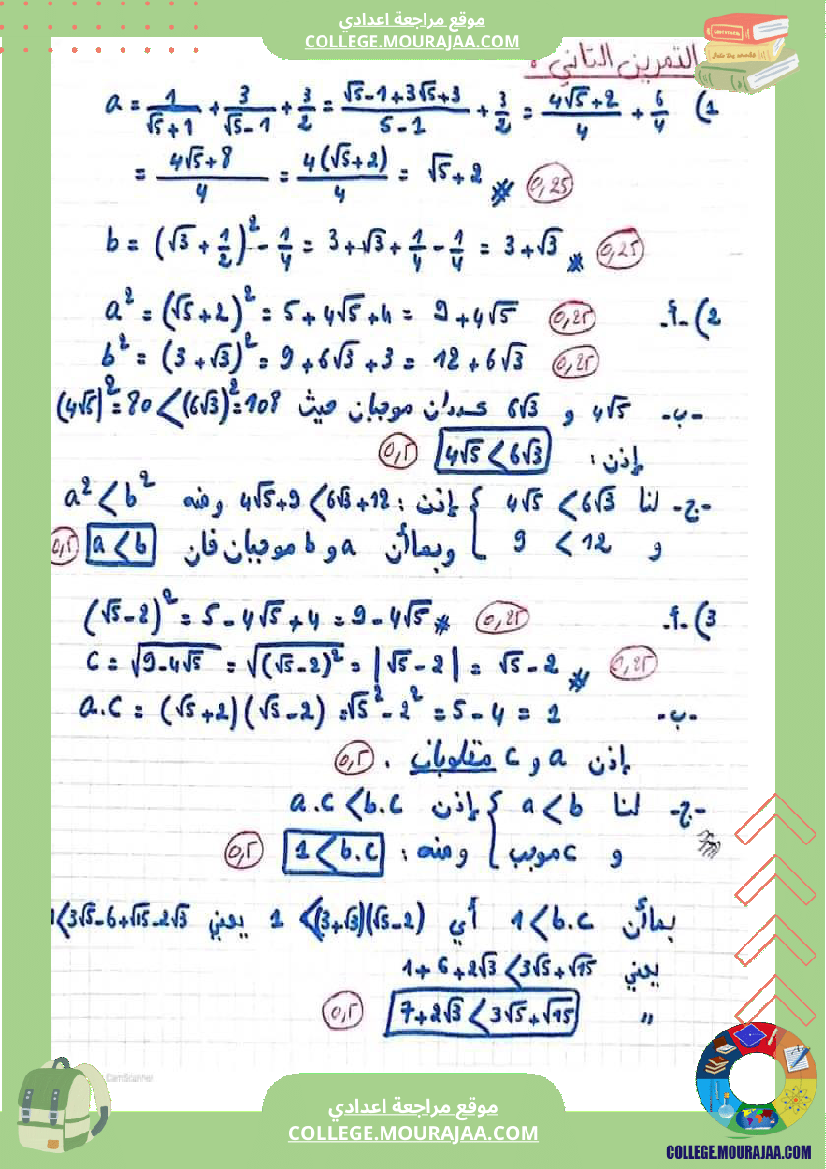 موقع مراجعة اعدادي
COLLEGE.MOURAJAA.COM
التمرين الثاني :
1) a = 1/(√5+1) + 3/(√5-1) + 3/2 = (√5-1+3√5+3)/(5-1) + 3/2 = (4√5+2)/4 + 6/4
= (4√5+8)/4 = 4(√5+2)/4 = √5+2 0,25
b = (√3 + 1/2)² - 1/4 = 3+√3+1/4-1/4 = 3+√3 0,25
2) أ- a² = (√5+2)² = 5+4√5+4 = 9+4√5 0,25
b² = (3+√3)² = 9+6√3+3 = 12+6√3 0,25
-ب- 4√5 و 6√3 عددان موجبان حيث (4√5)²=80<(6√3)²=108
إذن : 4√5<6√3 0,5
-ج- لنا { 4√5 <6√3 إذن : 4√5+9<6√3+12 ومنه a²<b²
و 9 < 12 وبما أن a و b موجبان فان a<b 0,5
3) أ- (√5-2)² = 5-4√5+4 = 9-4√5 0,25
c = √(9-4√5) = √((√5-2)²) = |√5-2| = √5-2 0,25
-ب- a.c = (√5+2)(√5-2) = √5²-2² = 5-4 = 1
إذن a و c مقلوبان . 0,5
-ج- لنا { a<b إذن a.c<b.c
و c موجب ومنه : 1<b.c 0,5
بما أن 1<b.c أي 1<(3+√3)(√5-2) يعني 1<3√5-6+√15-2√3
يعني 1+6+2√3<3√5+√15
" 7+2√3<3√5+√15 0,5
CamScanner
موقع مراجعة اعدادي
COLLEGE.MOURAJAA.COM
COLLEGE.MOURAJAA.COM